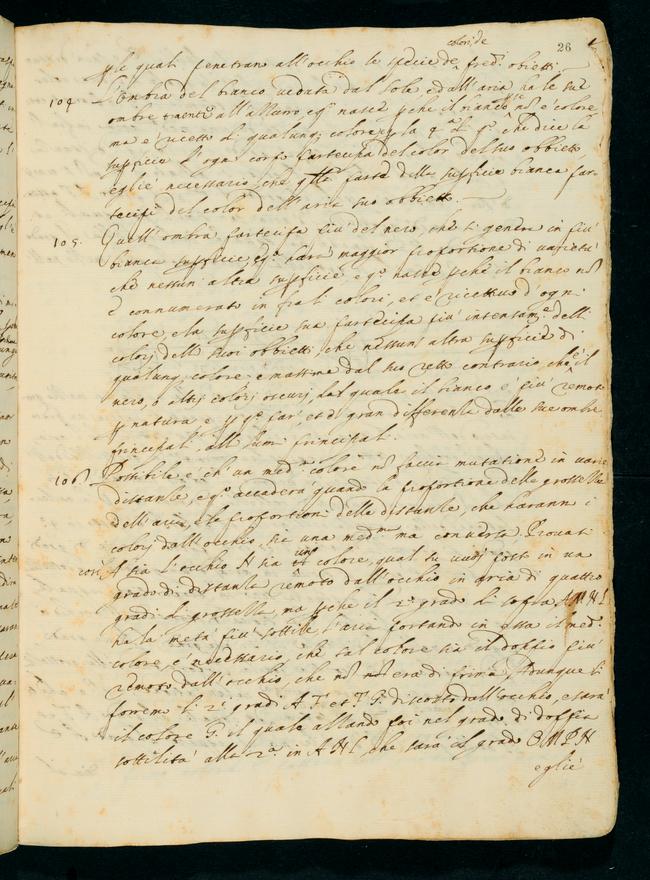 26
colori de
p le quali penetrano all'occhio le specie de fred.i obietti
104. L'ombra del bianco ueduta dal sole, e dall'aria ha le sue
ombre traenti all'azzurro, e q.o nasce pche il bianco nõ è colore
ma è ricetto di qualunq; colore, e p la 4.a di q.o che dice la
supficie d'ogni corpo partecipa del color del suo obbietto
egli è necessario, che q.lla parte della supficie bianca par-
tecipi del color dell'aria suo obbietto.
105. Quell'ombra partecipa più del nero, che si genera in più
bianca supficie, e q.a harà maggior proportione di uarietà
che nessun'altra supficie, e q.o nasce pchè il bianco nõ
è connumerato in frali colori, et è ricettiuo d'ogni
colore, e la supficie sua partecipa più intensam.e delli
colorj delli suoi obbietti, che nessun'altra supficie di
qualunq; colore e massime dal suo retto contrario, che è il
nero, o altrj colorj oscurj, dal quale il bianco è più remoto
p natura, e p q.o par', et è gran differenza dalle sue ombre
principali, alli lumi principali.
106. Possibile è ch'un med.o colore nõ faccia mutatione in uarie
distanze, e q.o accaderà quando la proportione delle grossezze
dell'aria, e le proportioni delle distanze, che haranno i
colorj dall'occhio, sie una med.ma ma conuersa. Prouasi
così. A sia l'occhio H sia un colore, qual tu uuoj posto in un
grado di distanza remoto dall'occhio in aria di quattro
gradi di grossezza, ma pche il 2.o grado di sopra A M H L
ha la metà più sottile l'aria portando in essa il med.o
colore, è necessario, che tal colore sia il doppio più
remoto dall'occhio, che nõ nõ era di prima, Adunque li
porremo li 2.i gradi A F et F G. discosto dall'occhio, e sarà
il colore G. il quale alzando poi nel grado di doppia
sottilità alla 2.a in A M H L, che sarà il grado O M P N
egli è